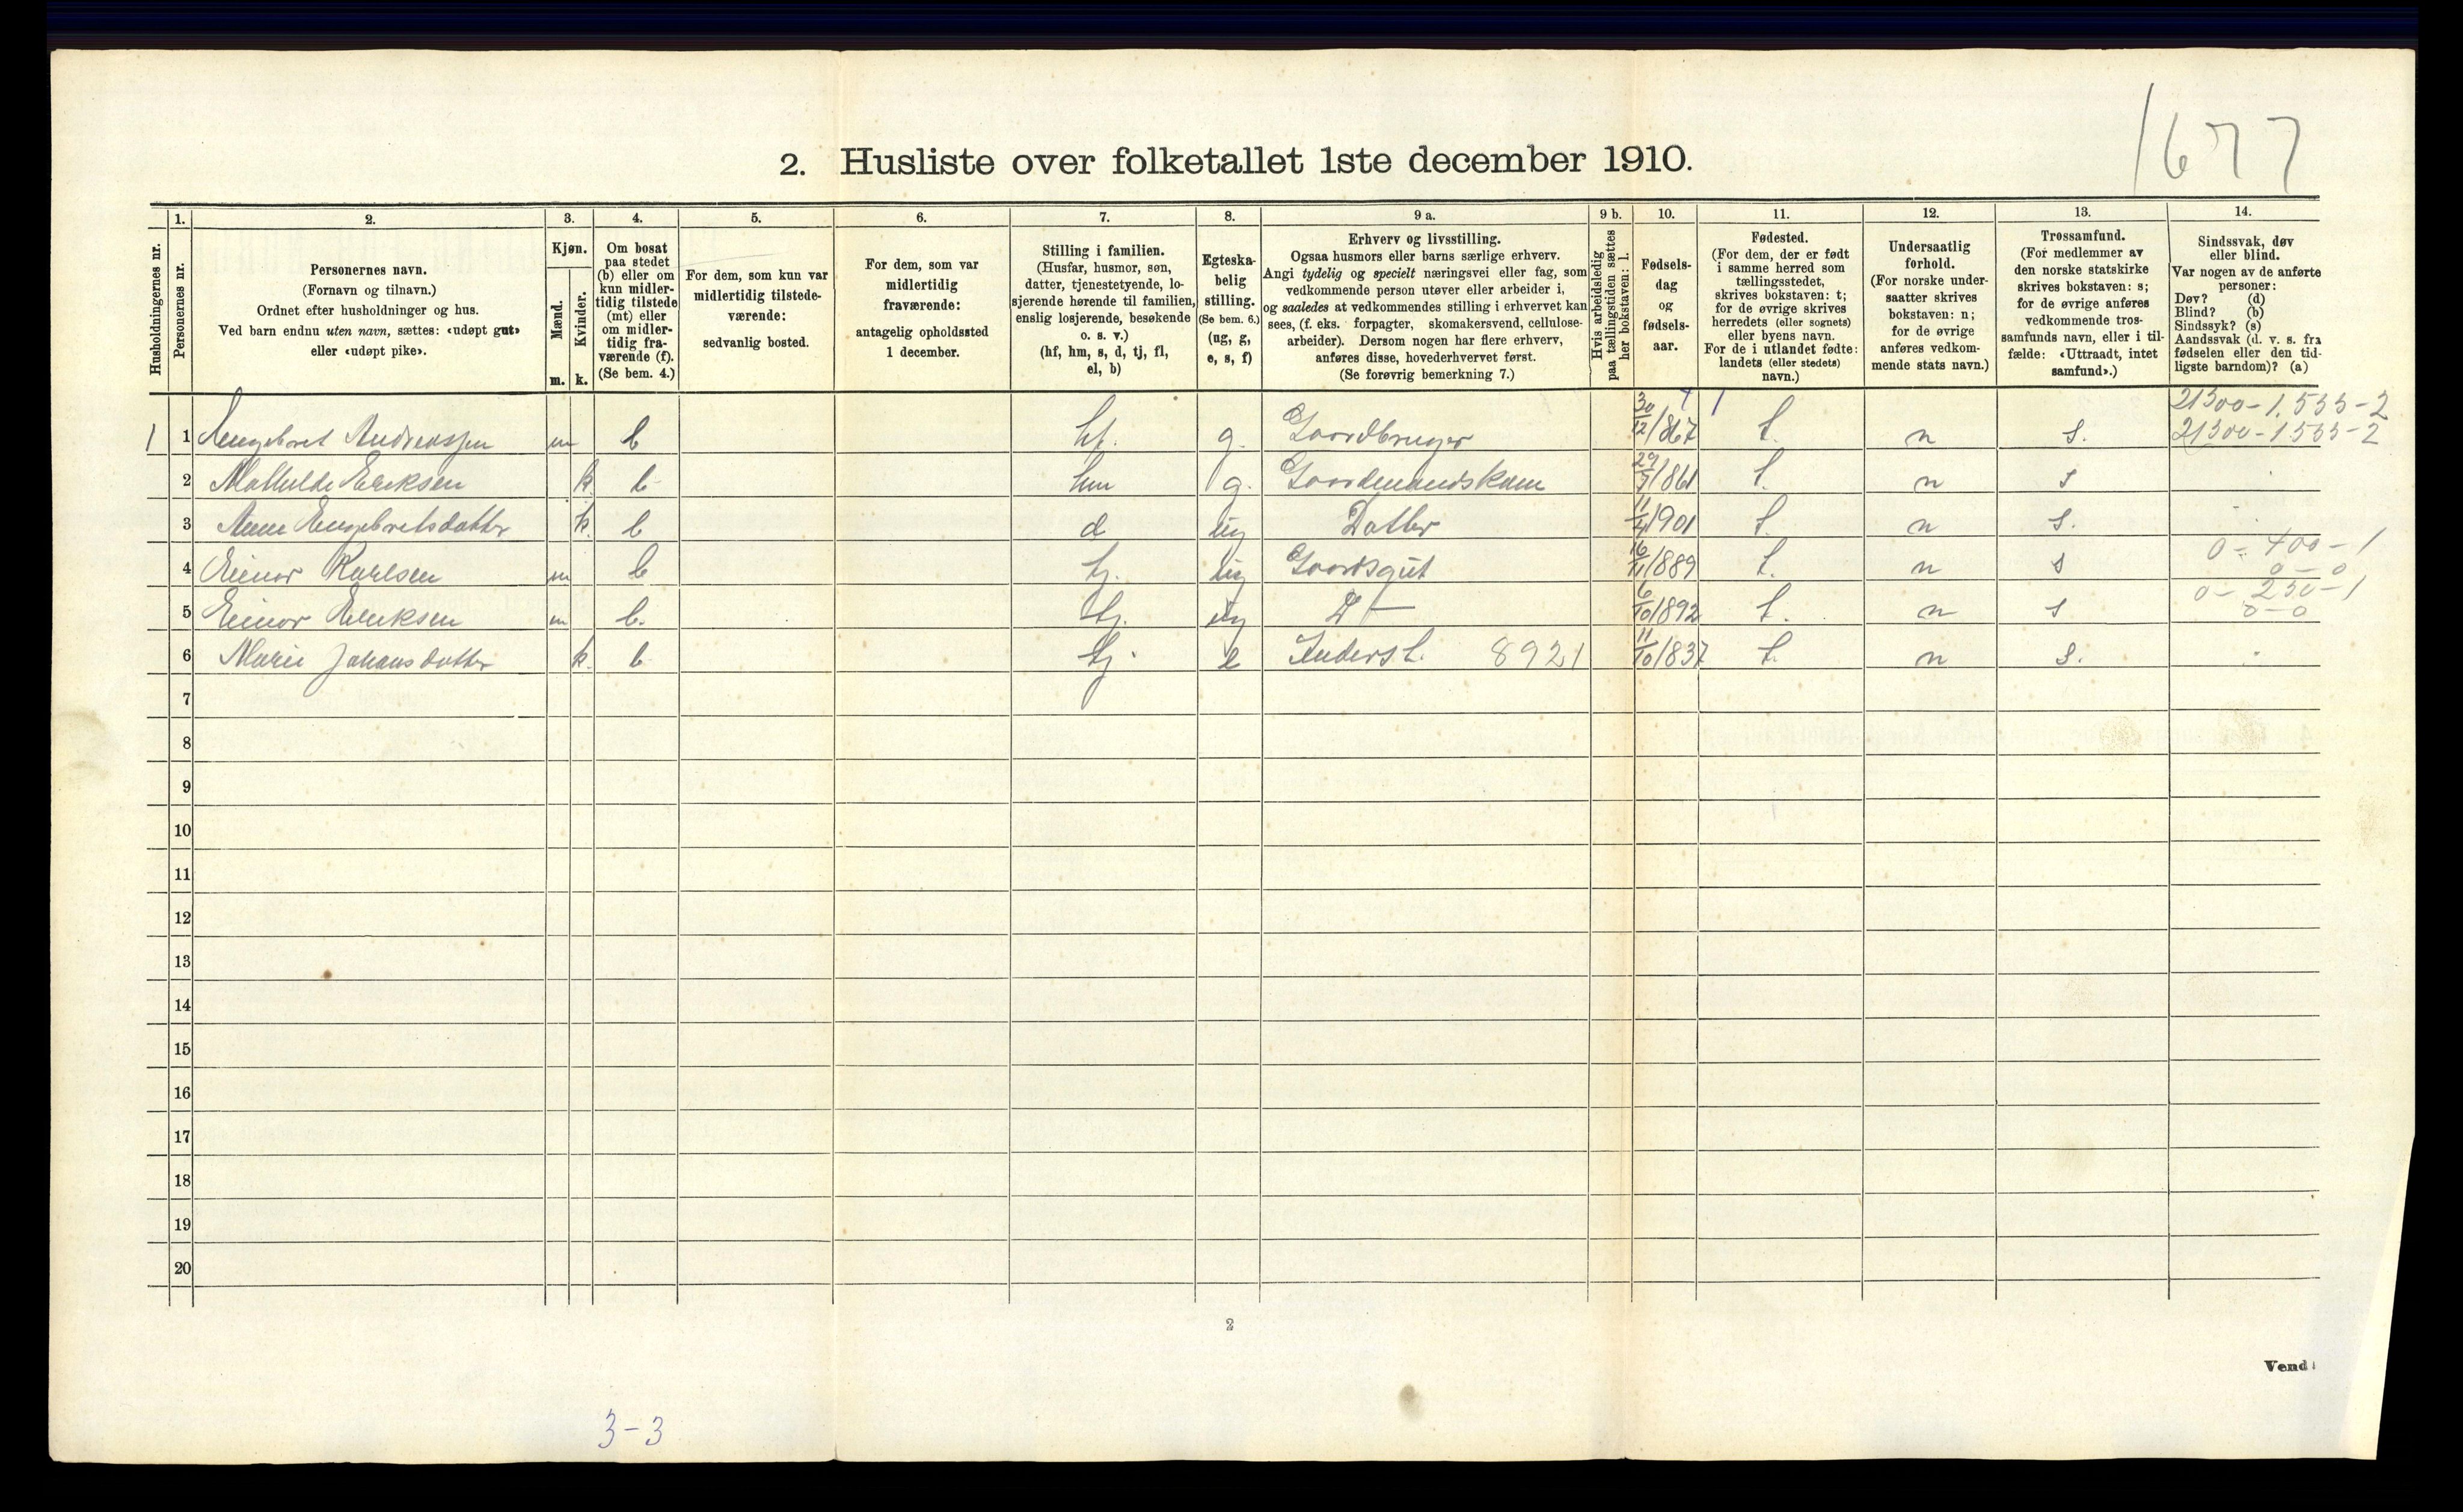 1677
2. Husliste over folketallet 1ste december 1910.
Husholdningernes nr.
1. Personernes nr.
2. Personernes navn.
(Fornavn og tilnavn.)
Ordnet efter husholdninger og hus.
Ved barn endnu uten navn, sættes: «udøpt gut»
eller «udøpt pike».
3. Kjøn.
Mænd. m.
Kvinder. k.
4. Om bosat
paa stedet
(b) eller om
kun midler-
tidig tilstede
(mt) eller
om midler-
tidig fra-
værende (f).
(Se bem. 4.)
5. For dem, som kun var
midlertidig tilstede-
værende:
sedvanlig bosted.
6. For dem, som var
midlertidig
fraværende:
antagelig opholdssted
1 december.
7. Stilling i familien.
(Husfar, husmor, søn,
datter, tjenestetyende, lo-
sjerende hørende til familien,
enslig losjerende, besøkende
o. s. v.)
(hf, hm, s, d, tj, fl,
el, b)
8. Egteska-
belig
stilling.
(Se bem. 6.)
(ug, g,
e, s, f)
9 a. Erhverv og livsstilling.
Ogsaa husmors eller barns særlige erhverv.
Angi tydelig og specielt næringsvei eller fag, som
vedkommende person utøver eller arbeider i,
og saaledes at vedkommendes stilling i erhvervet kan
sees, (f. eks. forpagter, skomakersvend, cellulose-
arbeider). Dersom nogen har flere erhverv,
anføres disse, hovederhvervet først.
(Se forøvrig bemerkning 7.)
9 b. Hvis arbeidsledig
paa tællingstiden sættes
her bokstaven: l.
10. Fødsels-
dag
og
fødsels-
aar.
11. Fødested.
(For dem, der er født
i samme herred som
tællingsstedet,
skrives bokstaven: t;
for de øvrige skrives
herredets (eller sognets)
eller byens navn.
For de i utlandet fødte:
landets (eller stedets)
navn.)
12. Undersaatlig
forhold.
(For norske under-
saatter skrives
bokstaven: n;
for de øvrige
anføres vedkom-
mende stats navn.)
13. Trossamfund.
(For medlemmer av
den norske statskirke
skrives bokstaven: s;
for de øvrige anføres
vedkommende tros-
samfunds navn, eller i til-
fælde: «Uttraadt, intet
samfund».)
14. Sindssvak, døv
eller blind.
Var nogen av de anførte
personer:
Døv? (d)
Blind? (b)
Sindssyk? (s)
Aandssvak (d. v. s. fra
fødselen eller den tid-
ligste barndom)? (a)
21300-1.535-2
1 1 Engebret Andreassen m b hf. g. Gaardbruger 30/12/867 t. n s. 21300-1535-2
2 Mathilde Eriksen k b hm g. Gaardmandskone 29/7/861 t. n s
3 Anne Engebretsdatter k. b d ug Datter 11/4/901 t. n s.
0-400-1
4 Einar Karlsen m b tj. ug Gaardsgut 16/11/889 t. n s 0-0
0-250-1
5 Einar Eriksen m b. tj. ug D — 6/10/1892 t. n s 0-0
6 Marie Johansdatter k. b tj. e Inderst. 8921 11/10/837 t. n s.
7
8
9
10
11
12
13
14
15
16
17
18
19
20
2
Vend
3-3